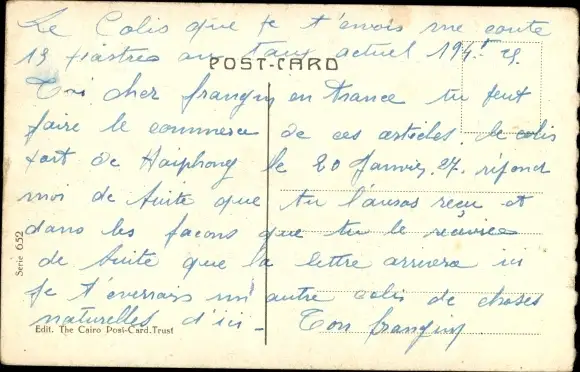 Le Colis que je t'envois me coute
13 piastres au taux actuel 194f 25.
POST-CARD
Toi cher frangin en France tu peut
faire le commerce de ces articles. le colis
part de Haiphong le 20 Janvier. 27. répond
moi de suite que tu l'auras reçu et
dans les facons que tu le recevica
de suite que la lettre arrivera ici
je t'enverrais un autre colis de choses
naturelles d'ici - Ton frangin
Serie 652
Edit. The Cairo Post-Card.Trust